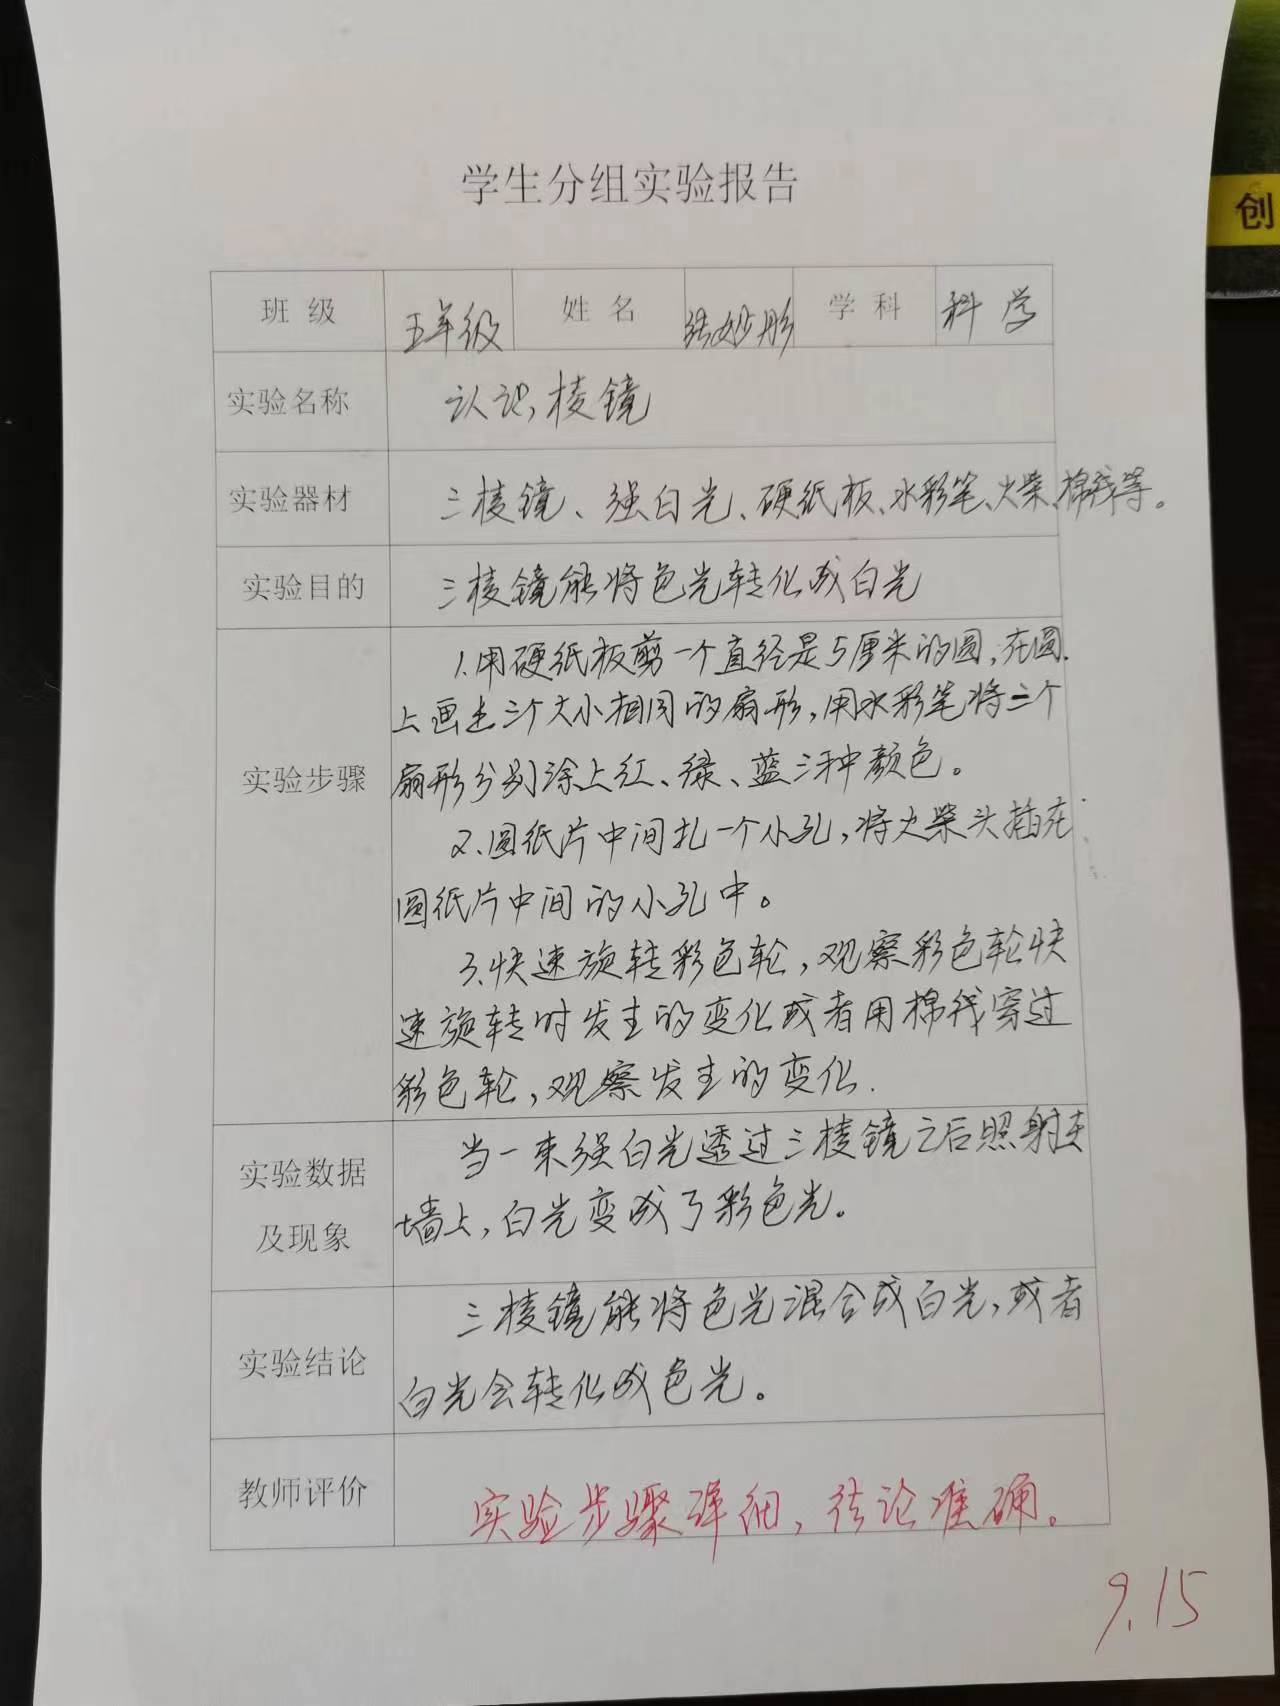 学生分组实验报告
创
班 级 五年级 姓 名 张妙彤 学 科 科学
实验名称 认识棱镜
实验器材 三棱镜、强白光、硬纸板、水彩笔、火柴、棉线等。
实验目的 三棱镜能将色光转化成白光
实验步骤
1.用硬纸板剪一个直径是5厘米的圆,在圆
上画出三个大小相同的扇形,用水彩笔将三个
扇形分别涂上红、绿、蓝三种颜色。
2.圆纸片中间扎一个小孔,将火柴头插在
圆纸片中间的小孔中。
3.快速旋转彩色轮,观察彩色轮快
速旋转时发生的变化或者用棉线穿过
彩色轮,观察发生的变化.
实验数据
及现象
当一束强白光透过三棱镜之后照射到
墙上,白光变成了彩色光。
实验结论
三棱镜能将色光混合成白光,或者
白光会转化成色光。
教师评价 实验步骤详细,结论准确。
9.15